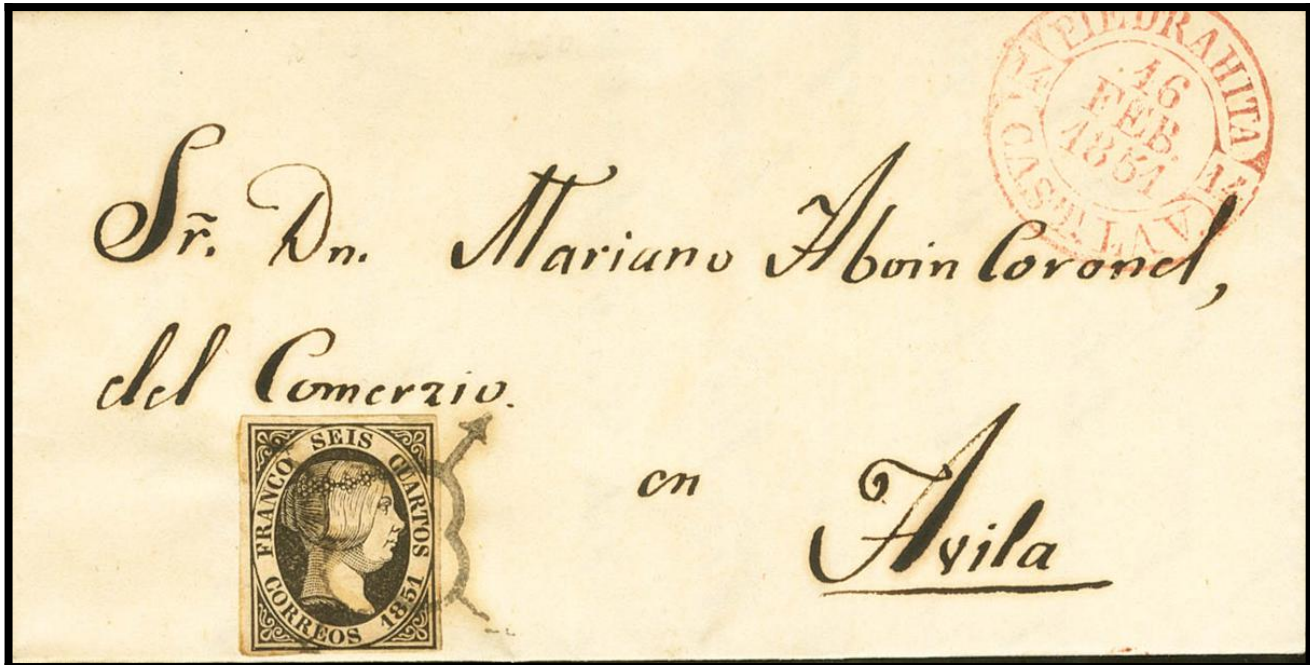 PIEDRAHITA
14 14
16
FEB.
1851
CAST.LA V.
Sr. Dn. Mariano Aboin Coronel,
del Comerzio.
en
Avila
FRANCO SEIS CUARTOS
CORREOS 1851